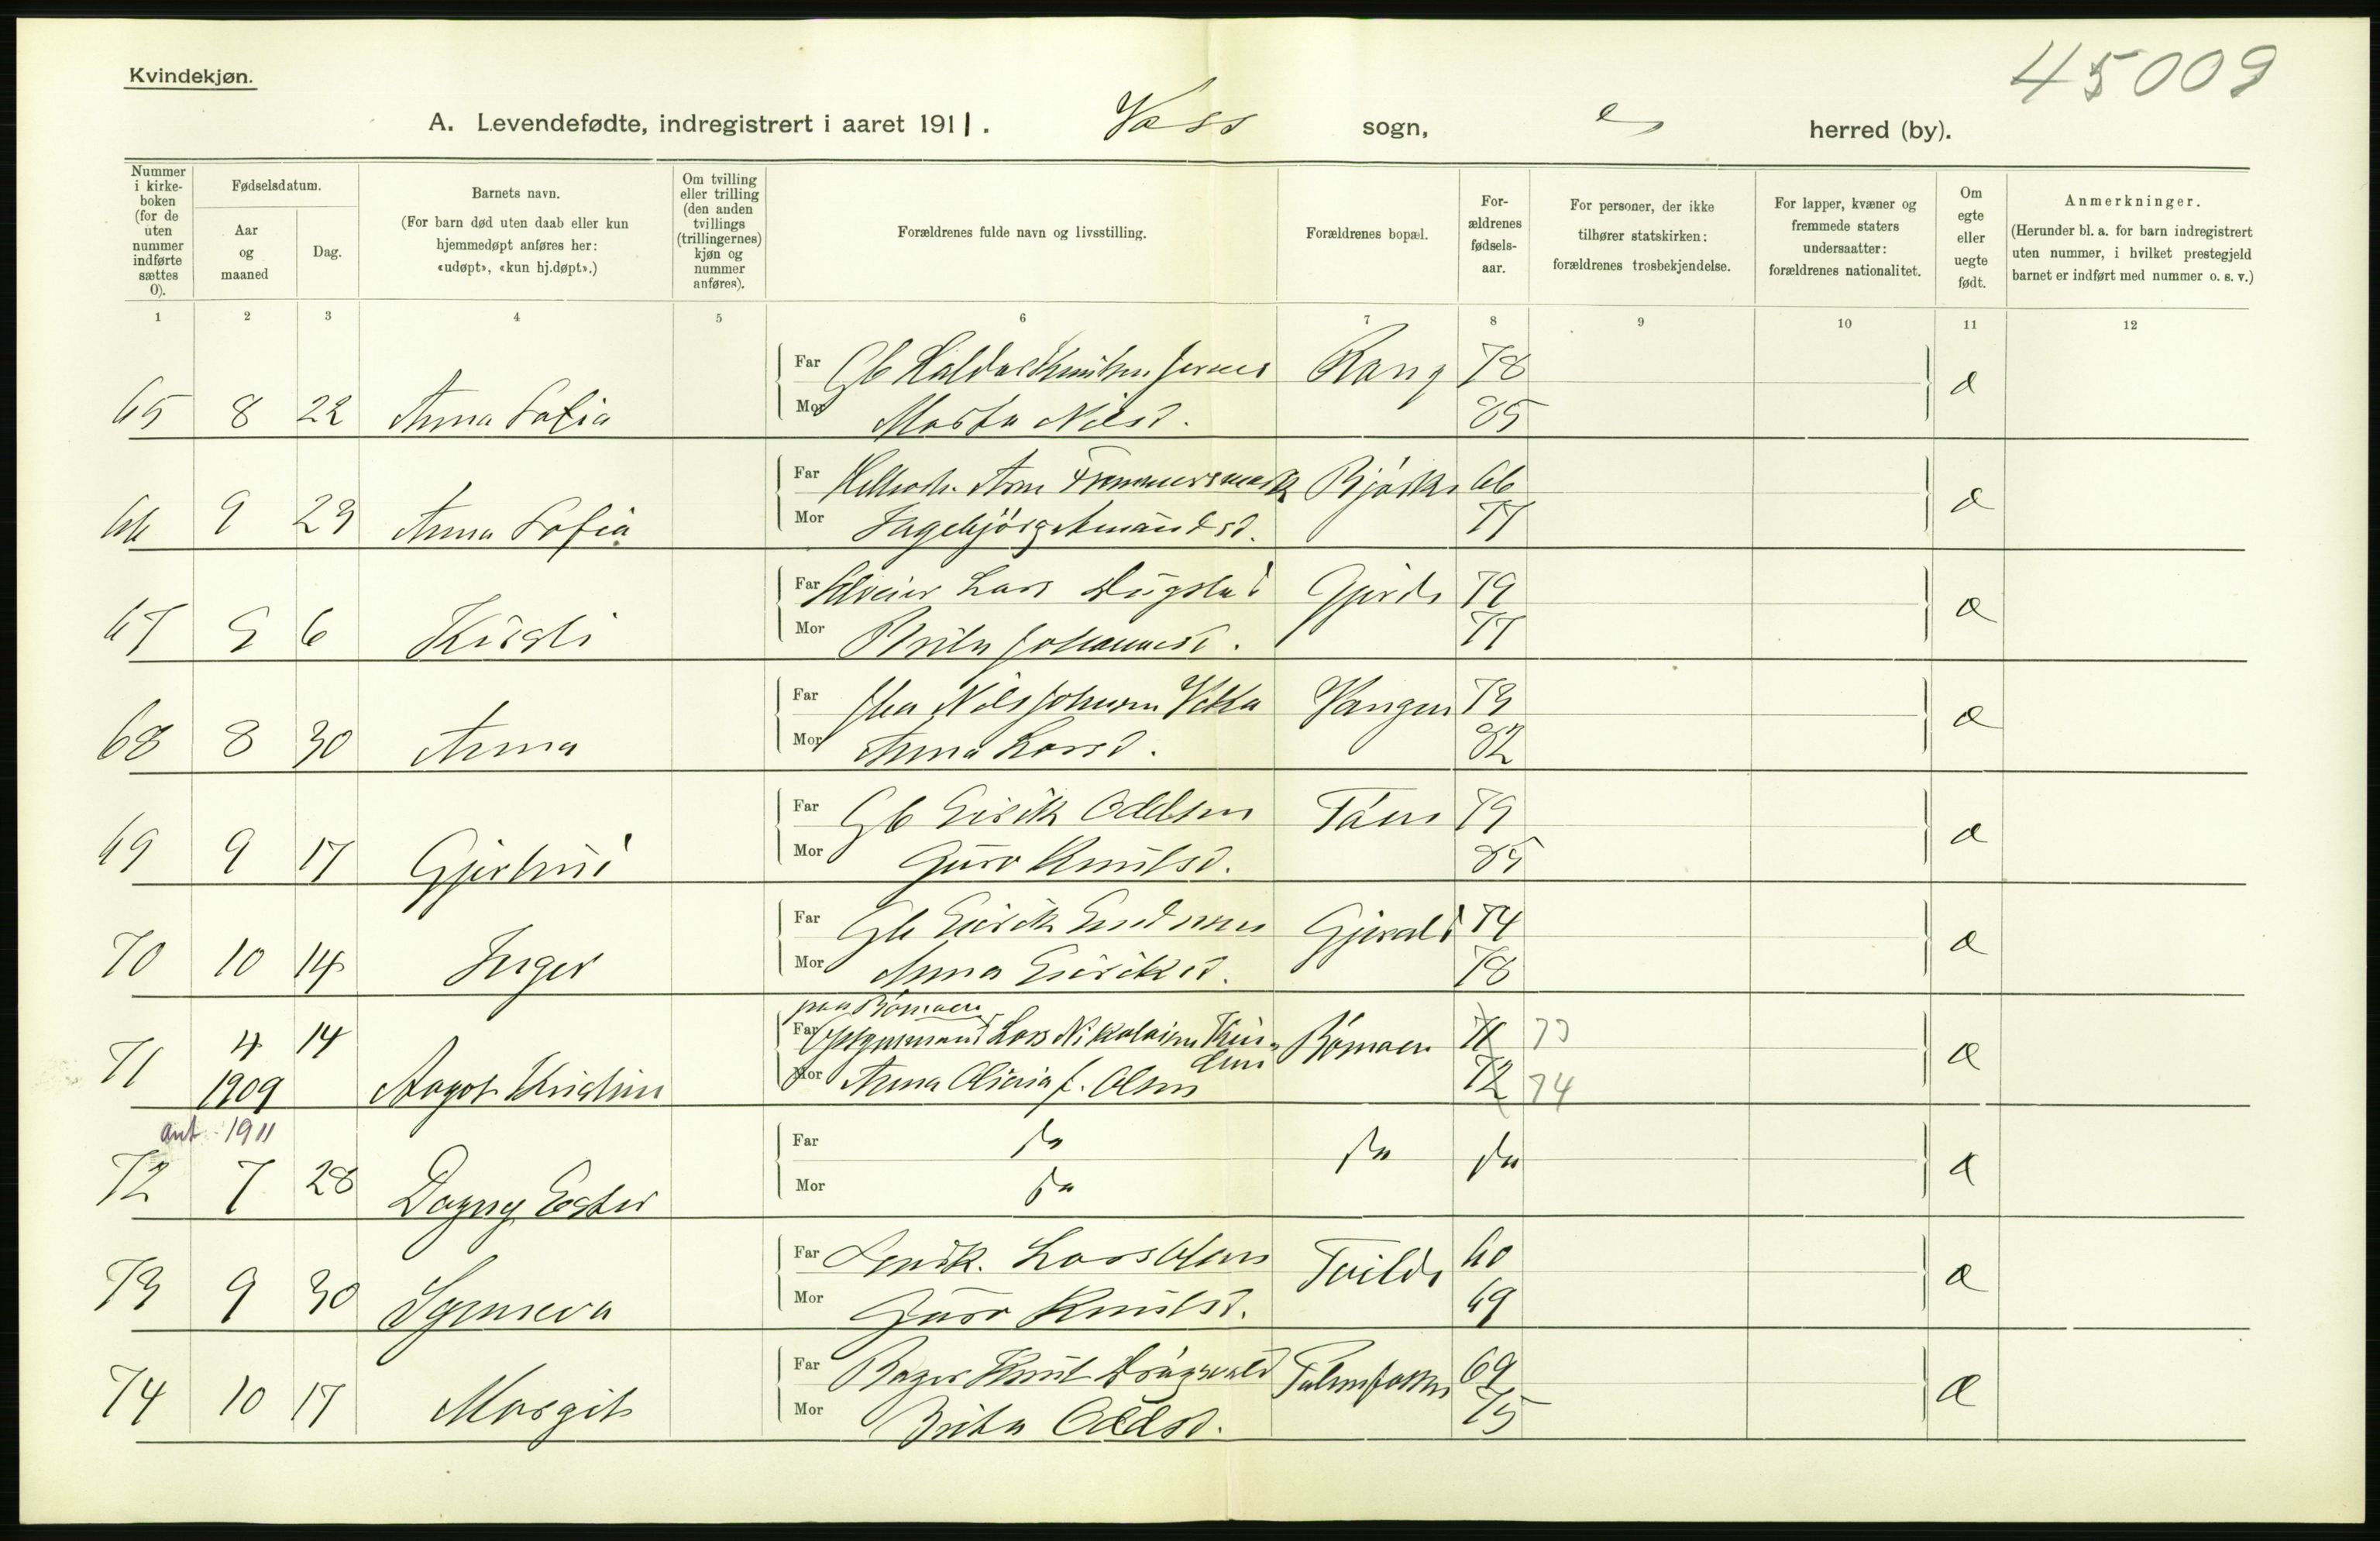 Kvindekjøn.
45009
A. Levendefødte, indregistrert i aaret 1911. Voss sogn, herred (by).
Nummer i kirke-boken (for de uten nummer indførte sættes 0).
Fødselsdatum.
Aar og maaned
Dag.
Barnets navn.
(For barn død uten daab eller kun hjemmedøpt anføres her: «udøpt», «kun hj.døpt».)
Om tvilling eller trilling (den anden tvillings (trillingernes) kjøn og nummer anføres).
Forældrenes fulde navn og livsstilling.
Forældrenes bopæl.
For-ældrenes fødsels-aar.
For personer, der ikke tilhører statskirken: forældrenes trosbekjendelse.
For lapper, kvæner og fremmede staters undersaatter: forældrenes nationalitet.
Om egte eller uegte født.
Anmerkninger.
(Herunder bl. a. for barn indregistrert uten nummer, i hvilket prestegjeld barnet er indført med nummer o. s. v.)
1 2 3 4 5 6 7 8 9 10 11 12
Far Gb Haldor Knutsen Rong 78
65 8 22 Anna Sofia Mor Marta Nilsd. 85 æ
Far Arne Bjørke 66
66 9 23 Anna Sofia Mor Ingebjörg Amundsd. 77 æ
Far Lars Dugstad Gjerde 79
67 9 6 Kirsti Mor Brita Johannesd. 77 æ
Far Nils Johnsen Vangen 73
68 8 30 Anna Mor Anna Larsd. 82 æ
Far Gb Eirik Oddsen 79
69 9 17 Gjertrud Mor Guro Knutsd. 85 æ
Far Gb Eirik Gjerald 74
70 10 14 Inger Mor Anna Eiriksd. 78 æ
Far Lars Nikolaisen 71 73
71 4 14 1909 Aagot Kristine Mor Anna f. Olsen 72 74 æ
1911
Far do do do
72 7 28 Dagny Ester Mor do æ
Far Lars Olsen Tvilde 60
73 9 30 Synneva Mor Guro Knutsd. 69 æ
Far Bager Knut 69
74 10 17 Margit Mor Brita Oddsd. 75 æ